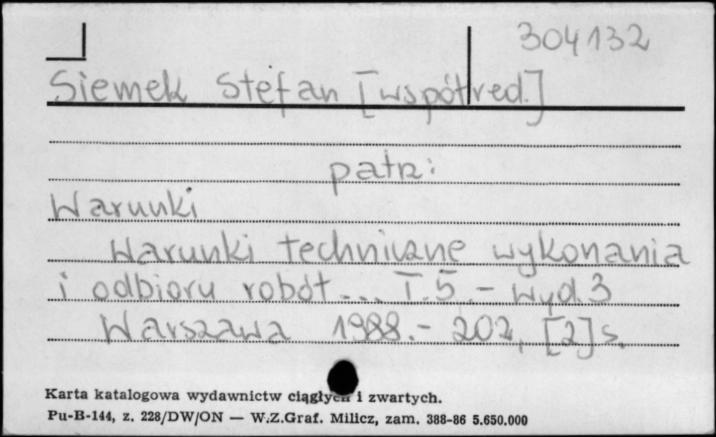 304132
Siemek Stefan [współred.]
patrz:
Warunki
Warunki techniczne wykonania
i odbioru robót ... T.5.- Wyd.3
Warszawa 1988.- 202, [2] s.
Karta katalogowa wydawnictw ciągłych i zwartych.
Pu-B-144, z. 228/DW/ON — W.Z.Graf. Milicz, zam. 388-86 5.650.000